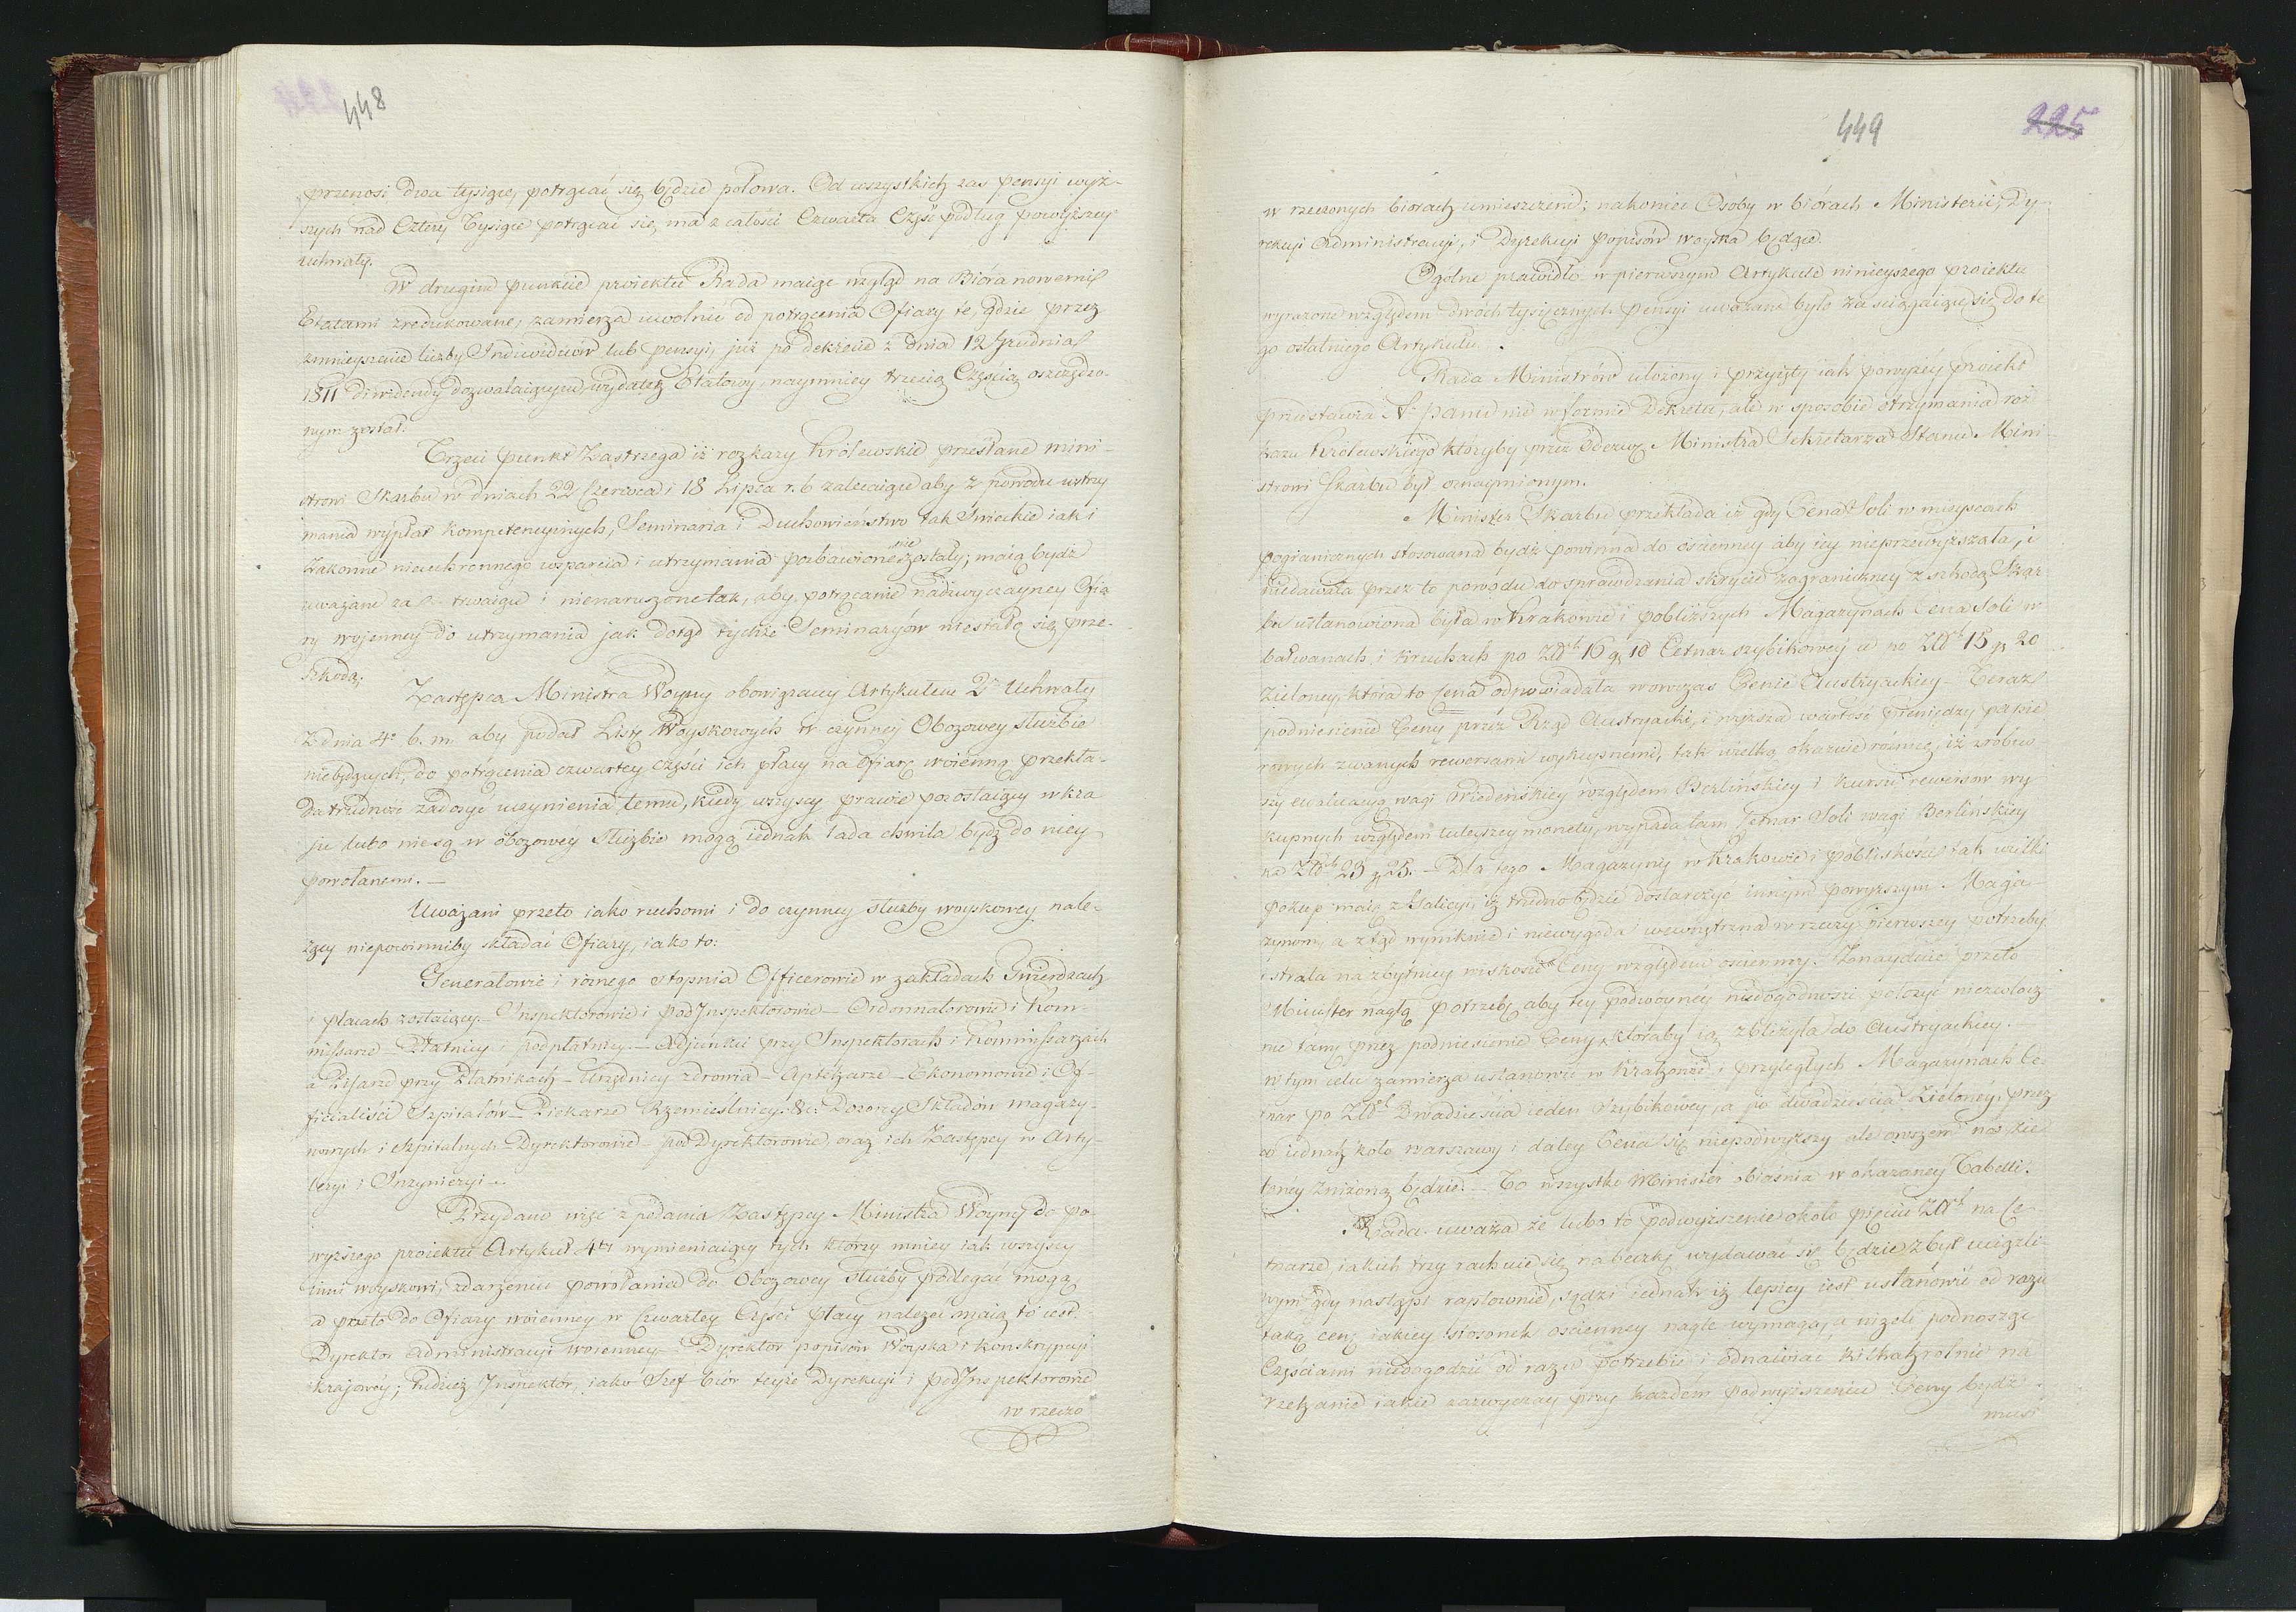 448
przenosi dwa tysiące, potrącać się będzie połowa. Od wszystkich zas pensyi wyż-
szych nad Cztery Tysiące potrącać się, ma z całości Czwarta Część podług powyższey
uchwały.
W drugim punkcie proiektu Rada maiąc wzgląd na Bióra nowemi
Etatami zredukowane, zamierza uwolnić od potrącenia Ofiary te, gdzie przez
zmnieyszenie liczby Individuów lub pensyi, już po dekrecie z dnia 12 Grudnia
1811 dozwalaiącym, wydatek Etatowy, naymniey trzecią Częścią oszczędzo-
nym został.
Trzeci punkt Zastrzega iż rozkazy Królewskie przesłane mini-
strowi Skarbu w dniach 22 Czerwca i 18 Lipca r. b. zalecaiące aby z powodu wstrzy
mania wypłat kompetencyinych, Seminaria i Duchowieństwo tak Świeckie iak i
Zakonne nieuchronnego wsparcia i utrzymania pozbawione nie zostały; maią bydź
uważane za trwaiące i nienaruszone tak, aby potrącanie nadzwyczayney Ofia
ry wojenney do utrzymania jak dotąd tychże Seminaryów niestało się prze-
szkodą;
Zastępca Ministra Woyny obowiązany Artykułem 2m Uchwały
z dnia 4o b. m. aby podał Listę Woyskowych w czynney Obozowey służbie
niebędących, do potrącenia czwartey części ich płacy na Ofiarę woienną przekła-
da trudność zadosyć uczynienia temu, kiedy wszyscy prawie pozostaiący w kra
ju lubo nie są w obozowey Służbie mogą iednak lada chwila bydź do niey
powołanemi. —
Uważani przeto iako ruchomi i do czynney służby woyskowey nale-
żący niepowinniby składać Ofiary, iako to:
Generałowie i różnego stopnia Officerowie w zakładach Twierdzach
i placach zostaiący — Inspektorowie i podInspektorowie — Ordonnatorowie i Kom-
missarze — Płatnicy i podpłatnicy — Adjunkci przy Inspektorach i Kommissarzach
a Pisarze przy Płatnikach — Urzędnicy zdrowia — Aptekarze — Ekonomowie i Of-
ficialiści Szpitalów — Piekarze Rzemieślnicy &c: Dozorcy Składów magazy-
nowych i Szpitalnych — Dyrektorowie — pod Dyrektorowie, oraz ich Zastępcy w Arty-
leryi i Inżynieryi —
Przydano więc z podania Zastępcy Ministra Woyny do po-
wyższego proiektu Artykuł 4ty wymieniaiący tych którzy mniey iak wszyscy
inni woyskowi, zdarzeniu powołania do Obozowey służby podlegać mogą
a przeto do Ofiary woienney w Czwartey Części płacy należeć maią to iest
Dyrektor Administracyi woienney — Dyrektor popisów Woyska i konskrypcyi
krajowéy; tudzież Inspektor, iako Szef biór teyże Dyrekcyi i podInspektorowie
w rzeczo
449
225
w rzeczonych biórach umieszczeni; nakoniec Osoby w biórach Ministerii, Dy-
rekcyi Administracyi, i Dyrekcyi popisów woyska będące.
Ogólne prawidło w pierwszym Artykule ninieyszego proiektu
wyrażone względem dwóch tysięcznych pensyi uważane było za sciągaiące się do te
go ostatniego Artykułu.
Rada Ministrów ułożony i przyięty iak powyżéy proiekt
przedstawia N. panu nie w formie Dekretu, ale w sposobie otrzymania roz-
kazu Królewskiego któryby przez Odezwę Ministra Sekretarza Stanu Mini-
strowi Skarbu był oznaymionym.
Minister Skarbu przekłada iż gdy Cena Soli w mieyscach
pogranicznych stosowana bydź powinna do ościenney aby iey nieprzewyższała, i
niedawała przez to powodu do sprowadzania skrycie zagraniczney z szkodą Skar
bu ustanowiona była w Krakowie i pobliższych Magazynach Cena Soli w
bałwanach i kruchach po Złłch 16 g. 10 Cetnar szybikowéy a po Złł 15 g 20
Zieloney, która to Cena odpowiadała wowczas Cenie Austryackiey — Teraz
podniesienie Ceny przez Rząd Austryacki, i wyższa wartość pieniędzy papie
rowych zwanych rewersami wykupnemi, tak wielką okazuie różnicę, iż zrobiw
szy ewaluacyą wagi Wiedeńskiey względem Berlińskiey i kursu rewersów wy
kupnych względem tuteyszey monety, wypada tam Cetnar Soli wagi Berlińskiey
na Złłch 23 g 25. — Dla tego Magazyny w Krakowie i pobliskości tak wielki
pokup maią z Galicyi, iż trudno będzie dostarczyć innym powyższym Maga-
zynom, a ztąd wyniknie i niewygoda wewnętrzna w rzeczy pierwszey potrzeby
i strata na zbytniey niskości Ceny względem ościenney. Znayduie przeto
Minister nagłą potrzebę aby tey podwoyney niedogodności położyć niezwłocz
nie tamę przez podniesienie Ceny, któraby ią zbliżyła do Austryackiey. —
W tym celu zamierza ustanowić w Krakowie i przyległych Magazynach Ce-
tnar po Złłch Dwadzieścia ieden Szybikowey, a po dwadzieścia Zielonéy, przez
co iednak koło Warszawy i daley Cena się niepodwyższy ale owszem na zie
lonéy zniżoną będzie. — To wszystko Minister obiaśnia w okazaney Tabelli.
Rada uważa że lubo to podwyższenie około pięciu Złłch na Ce-
tnarze, iakich trzy rachuie się na beczkę wydawać się będzie zbyt uciążli-
wym gdy nastąpi raptownie, sądzi iednak iż lepiey iest ustanowić od razu
taką cenę iakiey stosunek ościenney nagle wymaga, a niżeli podnosząc
Częściami niedogodzić od razu potrzebie i odnawiać kilkakrotnie na
rzekanie iakie zazwyczay przy każdém podwyższeniu Ceny bydź
musi